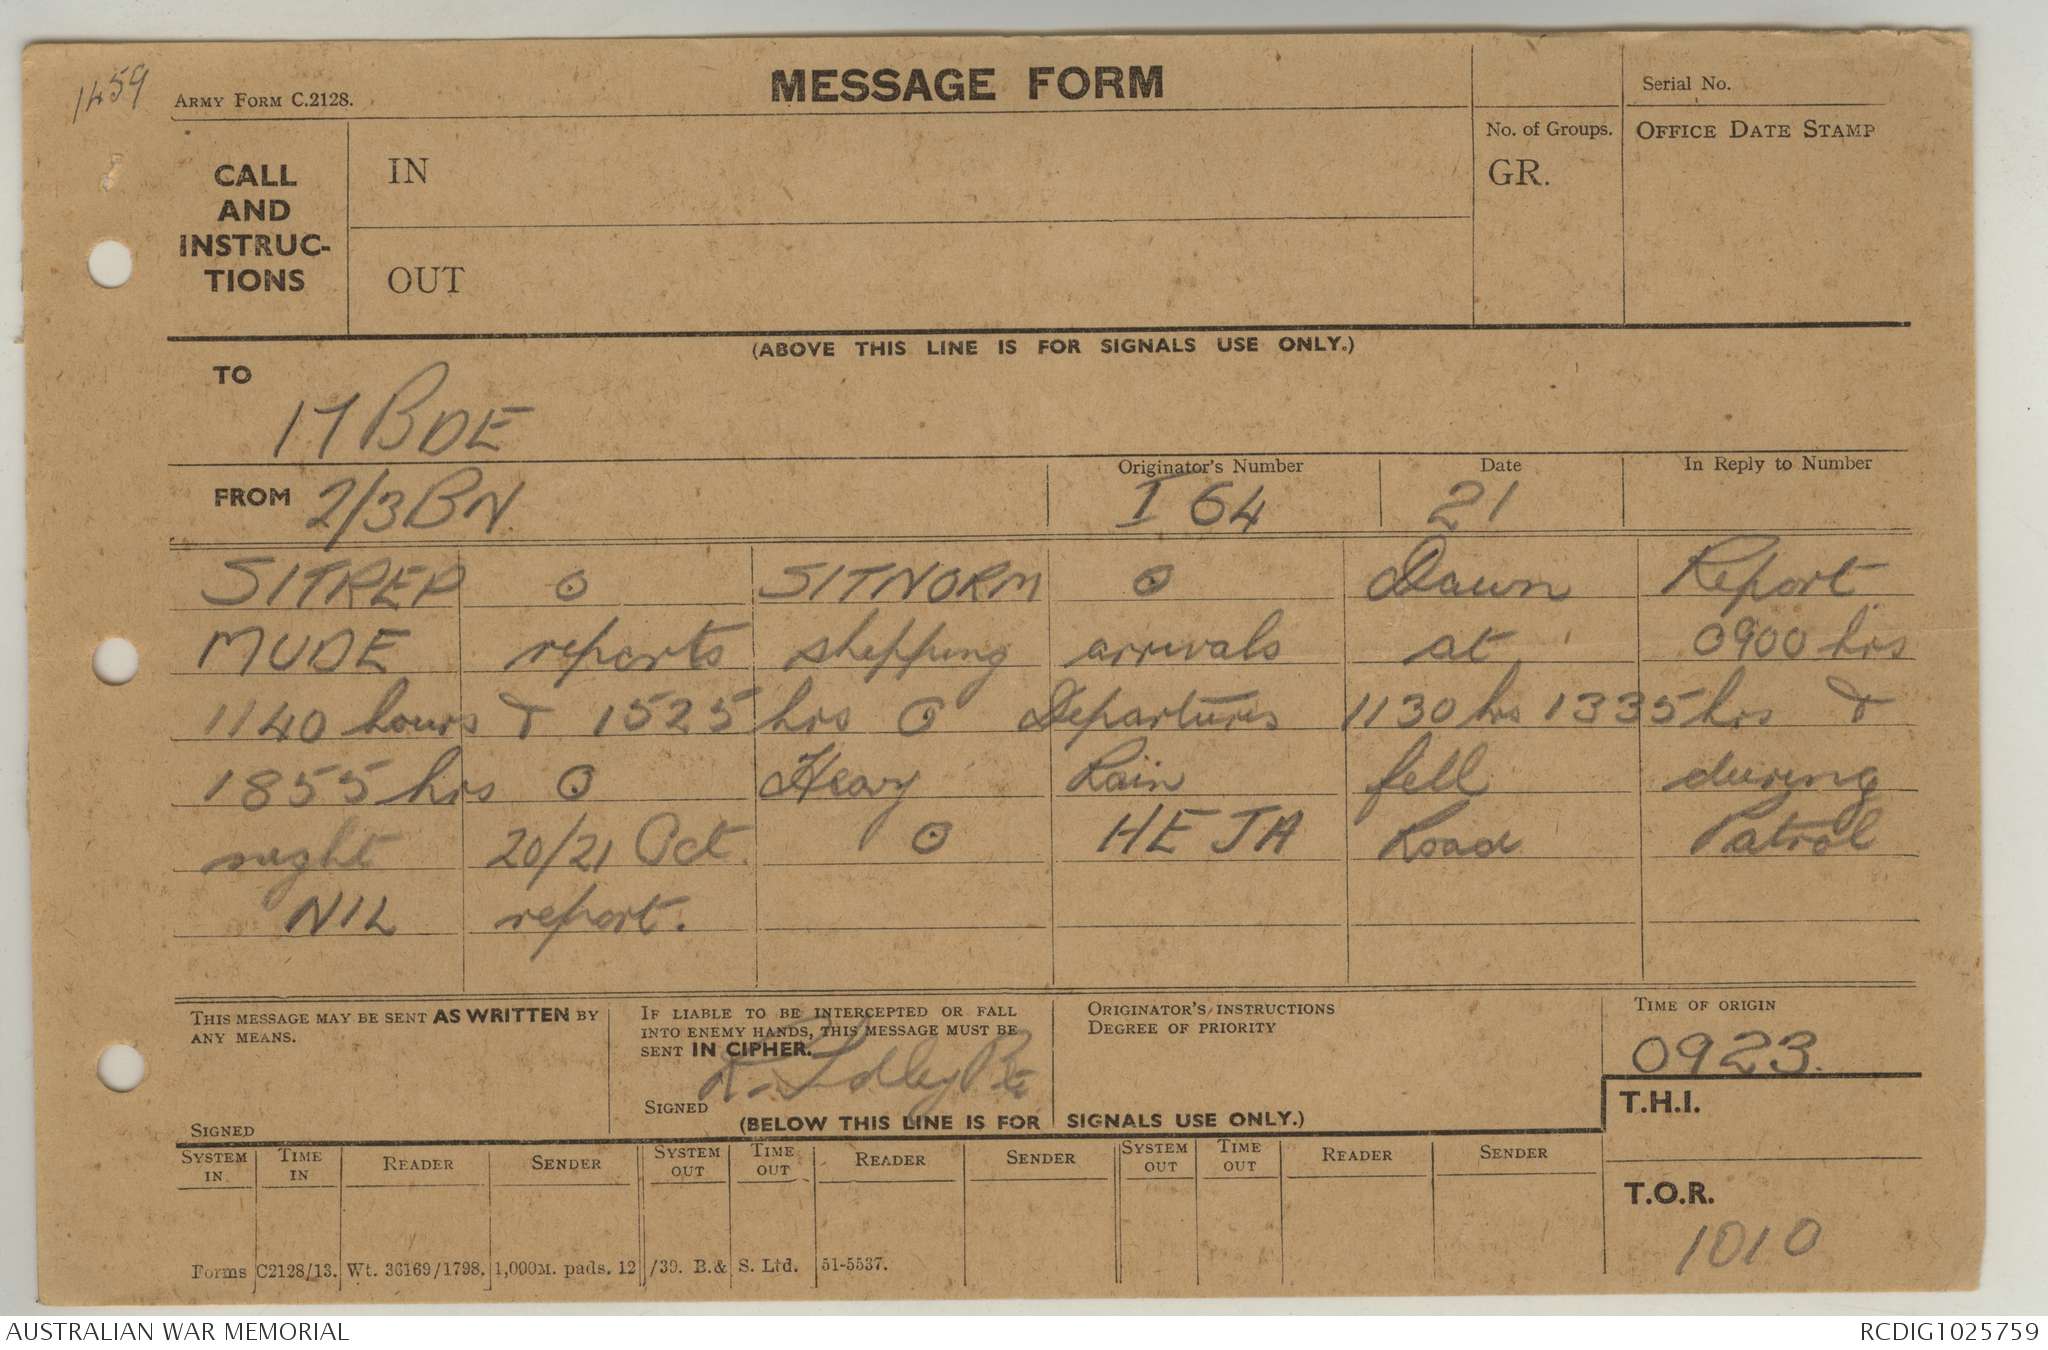 1459
ARMY FORM C.2128.
MESSAGE FORM
Serial No.
CALL AND INSTRUC-TIONS
IN
OUT
No. of Groups.
GR.
OFFICE DATE STAMP
(ABOVE THIS LINE IS FOR SIGNALS USE ONLY.)
TO
17 BDE
FROM 2/3 BN.
Originator's Number
I 64
Date
21
In Reply to Number
SITREP ⊙ SITNORM ⊙ Dawn Report.
MUDE reports shipping arrivals at 0900 hrs
1140 hours & 1525 hrs ⊙ Departures 1130 hrs 1335 hrs &
1855 hrs ⊙ Heavy Rain fell during
night 20/21 Oct. ⊙ HEJA Road Patrol
NIL report.
THIS MESSAGE MAY BE SENT AS WRITTEN BY
ANY MEANS.
SIGNED
IF LIABLE TO BE INTERCEPTED OR FALL
INTO ENEMY HANDS, THIS MESSAGE MUST BE
SENT IN CIPHER.
SIGNED
ORIGINATOR'S INSTRUCTIONS
DEGREE OF PRIORITY
TIME OF ORIGIN
0923.
(BELOW THIS LINE IS FOR SIGNALS USE ONLY.)
T.H.I.
SYSTEM IN TIME IN READER SENDER SYSTEM OUT TIME OUT READER SENDER SYSTEM OUT TIME OUT READER SENDER
T.O.R.
1010
Forms C2128/13. Wt. 36169/1798. 1,000M. pads. 12/39. B.& S. Ltd. 51-5537.
AUSTRALIAN WAR MEMORIAL
RCDIG1025759